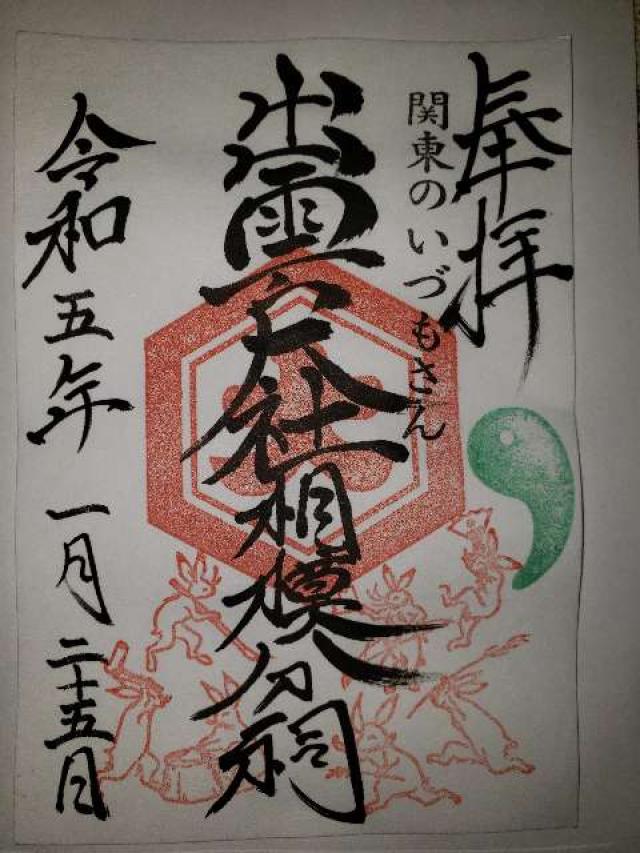 奉拝
関東のいづもさん
出雲大社相模分祠
令和五年一月二十五日